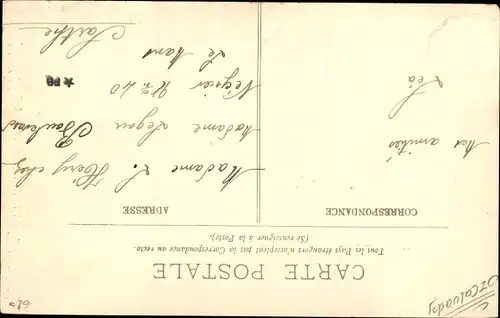 CARTE POSTALE
Tous les Pays étrangers n'acceptent pas la Correspondance au recto.
(Se renseigner à la Poste).
CORRESPONDANCE
ADRESSE
Mes amitiés
Léa
Madame L.
Héry chez
Madame Legou
Boulevard
Négrier Nº 40
Le Mans
Sarthe
★ PB
Calvados